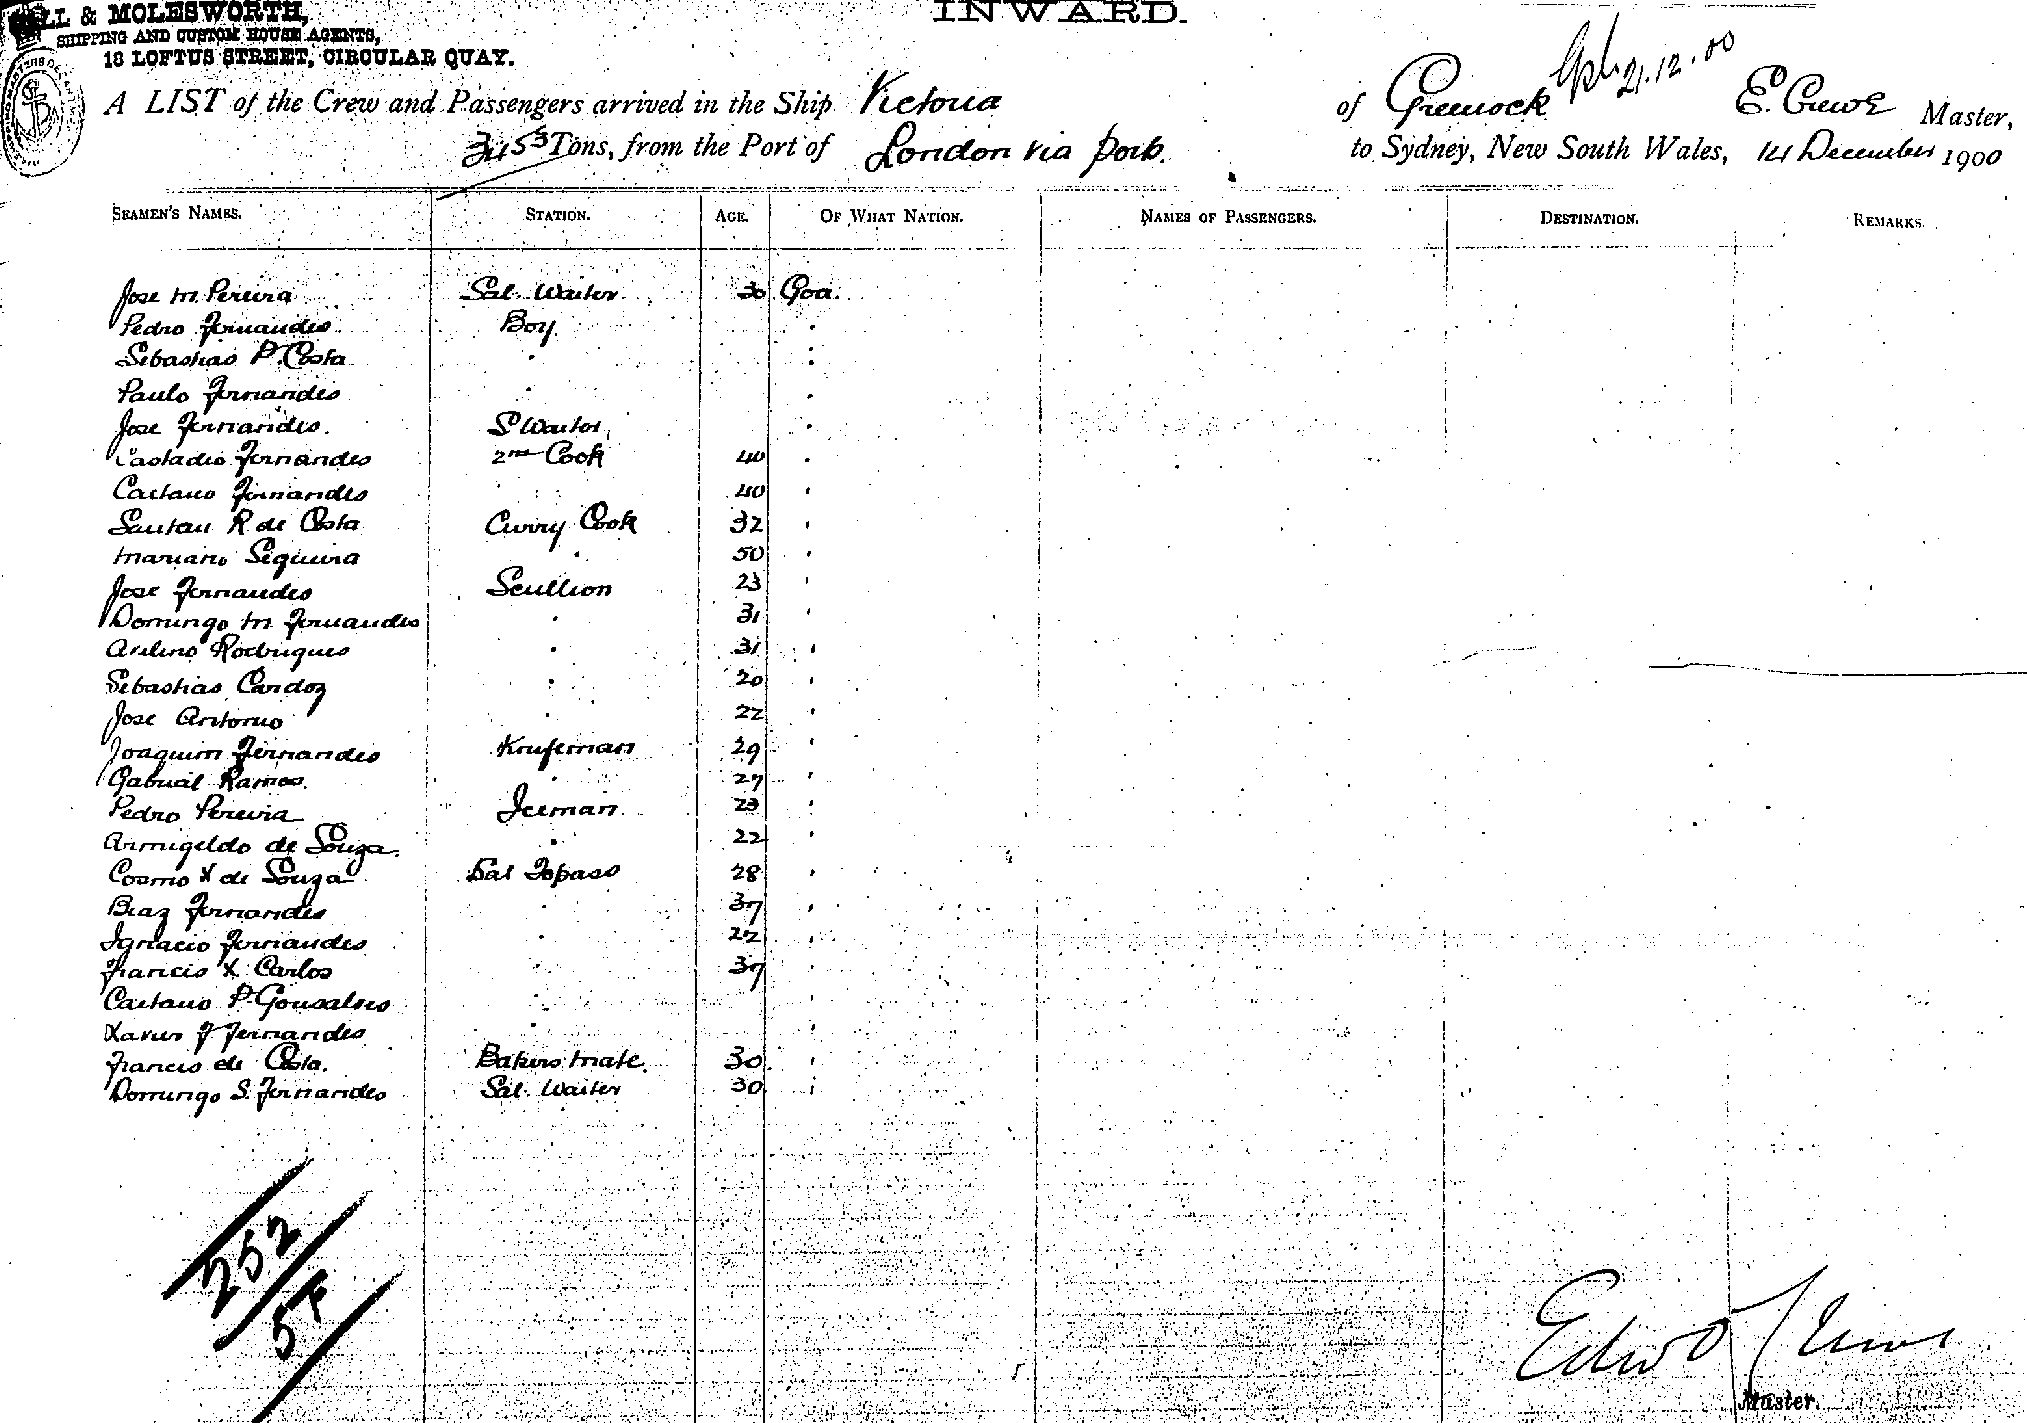 LL & MOLESWORTH,
SHIPPING AND CUSTOM HOUSE AGENTS,
18 LOFTUS STREET, CIRCULAR QUAY.
INWARD.
21.12.00
A LIST of the Crew and Passengers arrived in the Ship Victoria of Greenock E. Crewe Master,
3453 Tons, from the Port of London via ports. to Sydney, New South Wales, 14 December 1900
SEAMEN'S NAMES. STATION. AGE. OF WHAT NATION. NAMES OF PASSENGERS. DESTINATION. REMARKS.
Jose M. Pereira Sal. Waiter 30 Goa.
Pedro Fernandes Boy "
Sebastiao P. Costa " "
Paulo Fernandes " "
Jose Fernandes. S Waiter, "
Fernandes 2nd Cook 40 "
Caetano Fernandes " 40 "
Santan R de Costa Curry Cook 32 "
Mariano Sequeira " 50 "
Jose Fernandes Scullion 23 "
Domingo M. Fernandes " 31 "
Avelino Rodrigues " 31 "
Sebastiao Cardoz " 20 "
Jose Antonio " 22 "
Joaquim Fernandes Knifeman 29 "
Gabrial Ramos. " 27 "
Pedro Pereira Iceman 23 "
Armigeldo de Souza. " 22 "
Cosmo X de Souza Sal Topass 28 "
Braz Fernandes " 37 "
Ignacio Fernandes " 22 "
Francis X Carlos " 37 "
Caetano P. Gonsalves " "
Xavier F Fernandes " "
Francis de Costa. Bakers Mate. 30 "
Domingo S. Fernandes Sal. Waiter 30 "
252
Master.